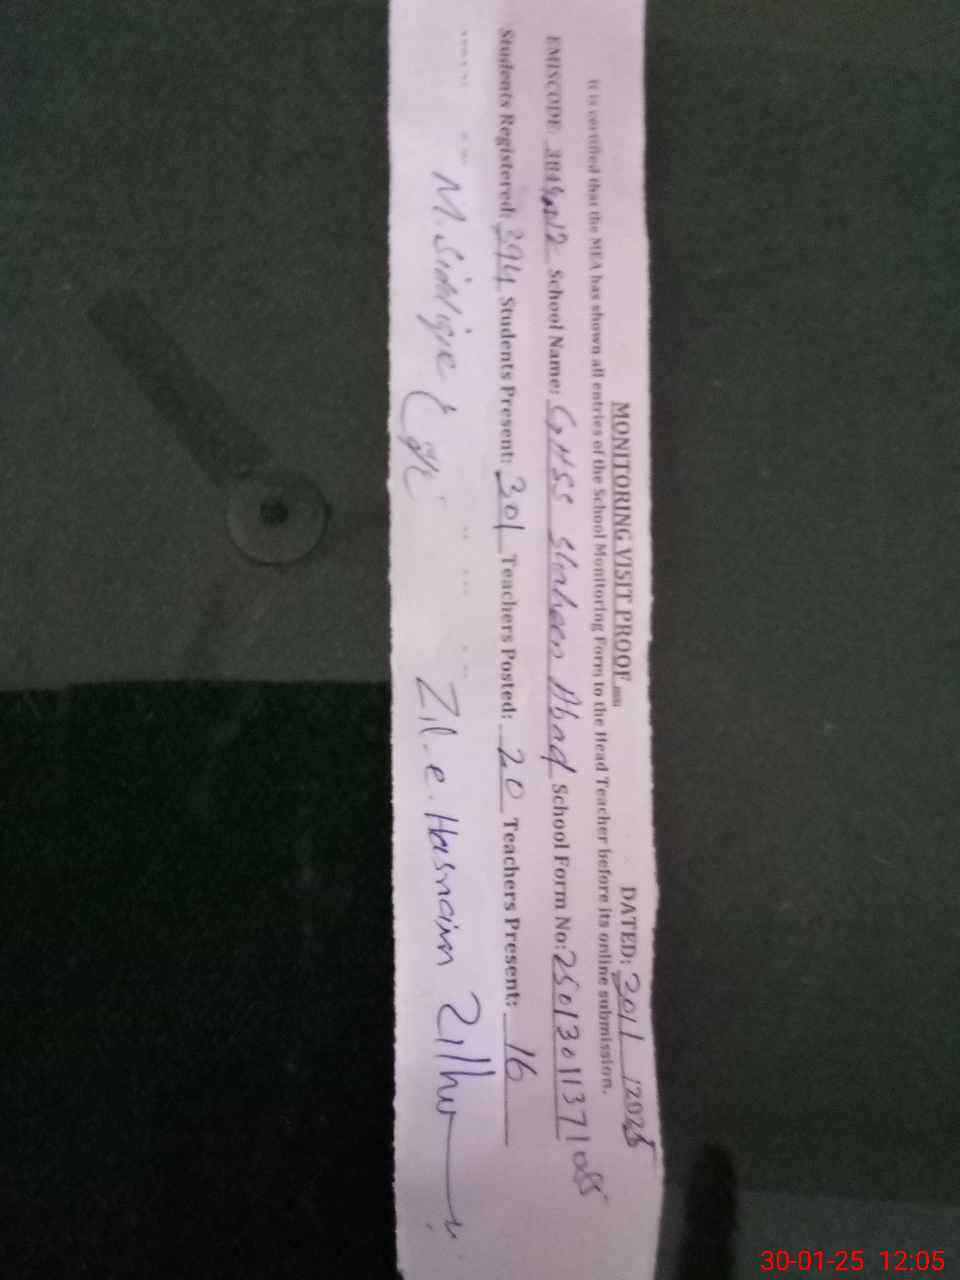 MONITORING VISIT PROOF DATED: 30/1/2025
It is certified that the MEA has shown all entries of the School Monitoring Form to the Head Teacher before its online submission.
EMISCODE: School Name: GHSS Shaheen Abad School Form No: 25013011371085
Students Registered: 394 Students Present: 301 Teachers Posted: 20 Teachers Present: 16
Zil-e-Hasnain
30-01-25 12:05